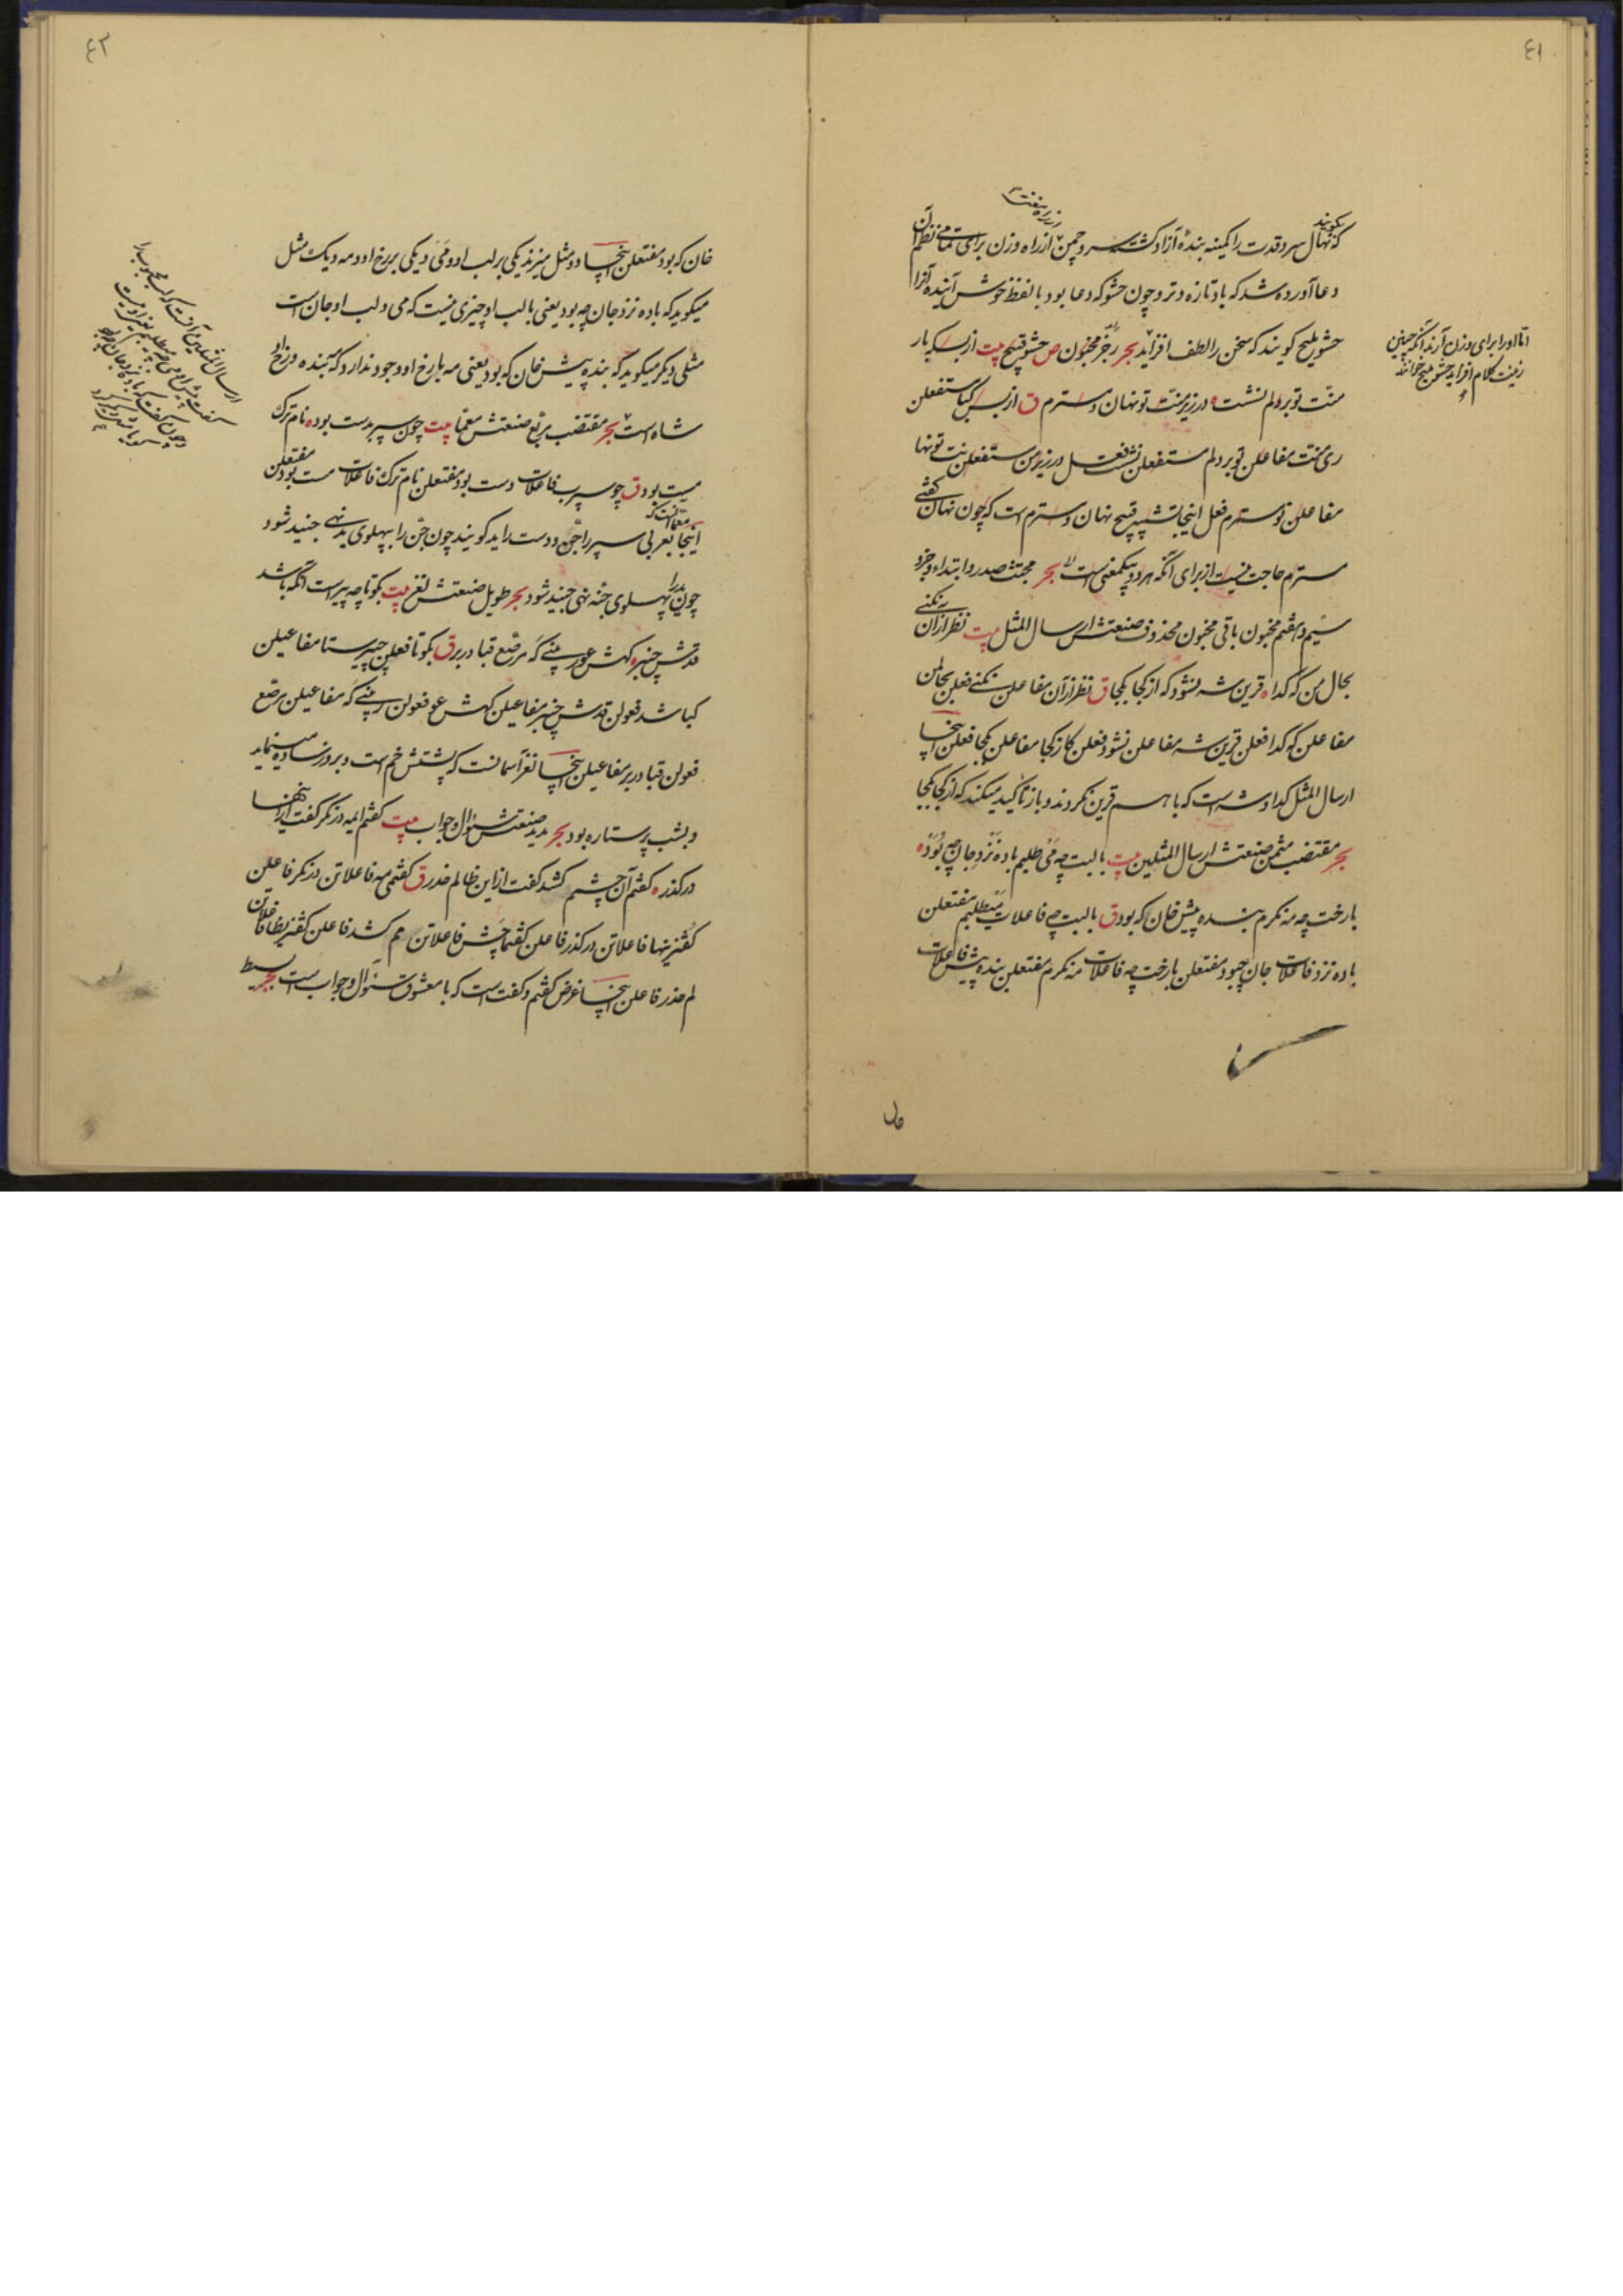 ٤١
میکویند
که نهال سرو قدت را کمینه بنده آزاد کشت سرو چمن از راه وزن برای تمامی نظم آن
دعا آورده شد که باد تازه و تر و چون حشو که دعا بود با لفظ خوش آینده آنرا
حشو ملیح کویند که سخن را لطف افزاید بحر رجز مخبون ص حشو قبیح بیت از بسکه بار
منت تو بر دلم نشست در زیر منت تو نهان و سترم ق از بس کبا مستفعلن
ری منت مفاعلن تو بر دلم مستفعلن نشست فعل در زیر من مستفعلن نت تو نها
مفاعلن ن و سترم فعل اینجا قبیح نهان و سترم است که چون نهان کفتی
سترم حاجت نیست از برای آنکه هر دو یکمعنی است بحر مجتث صدر و ابتداء و جزو
سیم و هفتم مخبون باقی مخبون محذوف صنعتش ارسال المثل بیت نظر از آن نکنی
بحال من که کدا قرین شه نشود که از کجا بکجا ق نظر از آن مفاعلن نکنی فعلن بحال من
مفاعلن که کدا فعلن قرین شه مفاعلن نشود فعلن کاز کجا مفاعلن بکجا فعلن اینجا
ارسال المثل کدا و شه است که با هم قرین نکردند و باز تاکید میکند که از کجا بکجا
بحر مقتضب مثمن صنعتش ارسال المثلین بیت با لبت چه می طلبم باده نزد جان چه بود
با رخت چه مه نکرم بنده پیش خان که بود ق با لبت چه فاعلات می طلبم مفتعلن
باده نزد فاعلات جان چبود مفتعلن با رخت چه فاعلات مه نکرم مفتعلن بنده پیش فاعلات
اما او را برای وزن آرند آنکه چنین
زینت کلام افزاید حشو ملیح خوانند
٤٢
خان که بود مفتعلن اینجا دو مثل میزند یکی بر لب او و می و یکی بر رخ او و مه و یک مثل
میکوید که باده نزد جان چه بود یعنی با لب او چیزی نیست که می و لب او جان است
مثلی دیکر میکوید که بنده پیش خان که بود یعنی مه با رخ او وجود ندارد که مه بنده و رخ او
شاه است بحر مقتضب مربع صنعتش معما بیت چون سپر بدست بود نام ترک
مست بود ق چو سپر ب فاعلات دست بود مفتعلن نام ترک فاعلات مست بود مفتعلن
اینجا بعربی سپر را جن و دست را ید کویند چون جن را بپهلوی ید نهی جنید شود
چون ید را بپهلوی جنه نهی جنید شود بحر طویل صنعتش لغز بیت بکو تا چه پیر است آنکه باشد
قدش چنبر کهش عور بینی که مرصع قبا در بر ق بکو تا فعولن چپیر ستا مفاعیلن
کباشد فعولن قدش چنبر مفاعیلن کهش عو فعولن ر بینی که مفاعیلن مرصع
فعولن قبا در بر مفاعیلن اینجا لغز آسمانست که پشتش خم است و بروز ساده مینماید
و بشب پر ستاره بود بحر مدید صنعتش سئوال و جواب بیت کفتم ای مه در نکر کفت از اینها
در کذر کفتم آن چشمم کشد کفت از این ظالم حذر ق کفتمی مه فاعلاتن در نکر فاعلن
کفتز ینها فاعلاتن در کذر فاعلن کفتما چش فاعلاتن مم کشد فاعلن کفتزین ظا فاعلاتن
لم حذر فاعلن اینجا غرض کفتم و کفت است که با معشوق سئوال و جواب است بحر بسیط